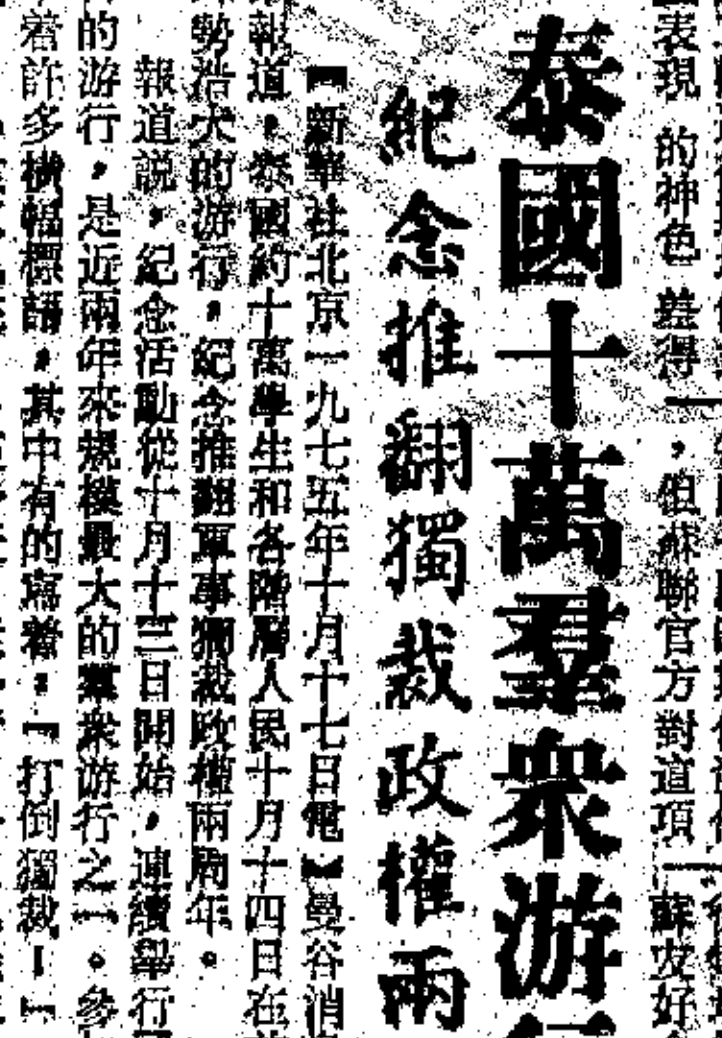 表現 的神色 差得
，但蘇聯官方對這項
蘇友好
泰國十萬羣衆游
紀念推翻獨裁政權兩
【新華社北京一九七五年十月十七日電】曼谷消
報道，泰國約十萬學生和各階層人民十月十四日在
勢浩大的游行，紀念推翻軍事獨裁政權兩周年。
報道説，紀念活動從十月十三日開始，連續舉行
的游行，是近兩年來規模最大的羣衆游行之一。參
着許多橫幅標語，其中有的寫着：「打倒獨裁！」